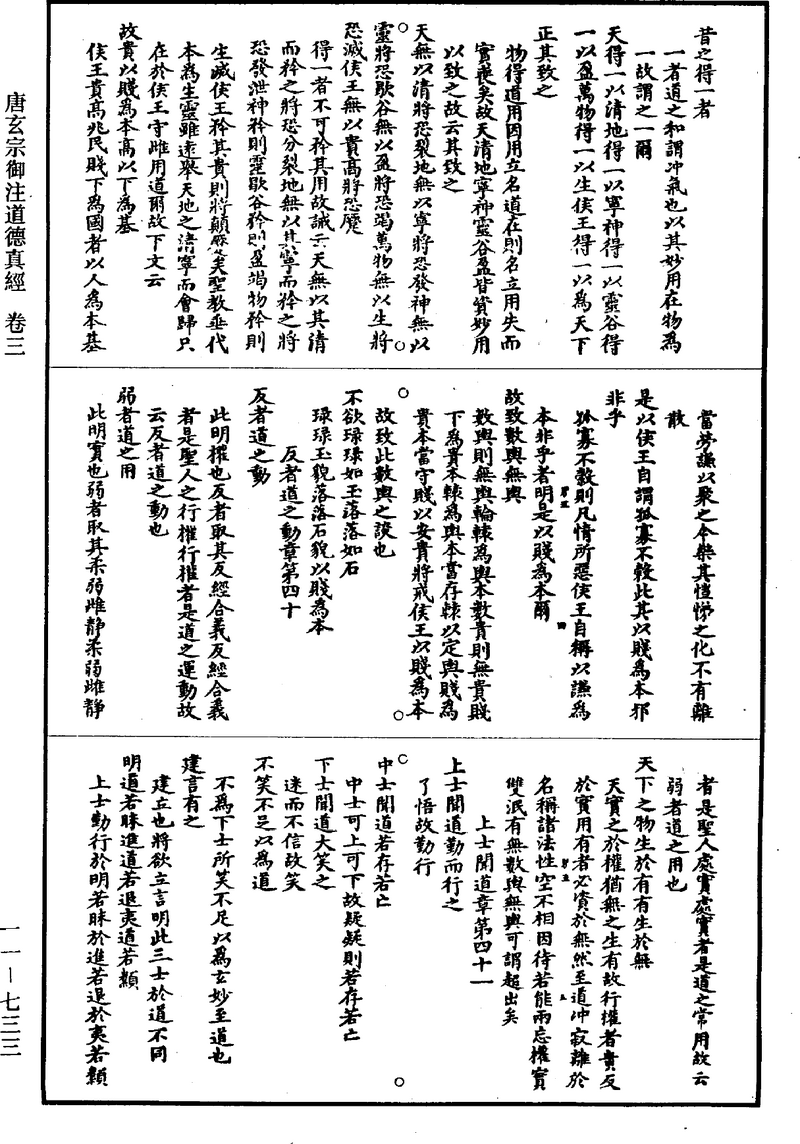 唐玄宗御注道德真經　卷三
昔之得一者
一者道之和謂冲氣也以其妙用在物為
一故謂之一爾
天得一以清地得一以寧神得一以靈谷得
一以盈萬物得一以生侯王得一以為天下
正其致之
物得道用因用立名道在則名立用失而
實喪矣故天清地寧神靈谷盈皆資妙用
以致之故云其致之
天無以清將恐裂地無以寧將恐發神無以
靈將恐歇谷無以盈將恐竭萬物無以生將
恐滅侯王無以貴高將恐蹷
得一者不可矜其用故誡云天無以其清
而矜之將恐分裂地無以其寧而矜之將
恐發泄神矜則靈歇谷矜則盈竭物矜則
生滅侯王矜其貴則將顛蹷矣聖教垂代
本為生靈雖遠舉天地之清寧而會歸只
在於侯王守雌用道爾故下文云
故貴以賤為本高以下為基
侯王貴高兆民賤下為國者以人為本基
當勞謙以聚之令樂其愷悌之化不有離
散
是以侯王自謂孤寡不穀此其以賤為本邪
非乎
孤寡不穀則凡情所惡侯王自稱以謙為
本非乎者明是以賤為本爾
故致數輿無輿
數輿則無輿輪轅為輿本數貴則無貴賤
下為貴本轅為輿本當存轅以定輿賤為
貴本當守賤以安貴將戒侯王以賤為本
故致此數輿之談也
不欲琭琭如玉落落如石
琭琭玉貌落落石貌以賤為本
反者道之動章第四十
反者道之動
此明權也反者取其反經合義反經合義
者是聖人之行權行權者是道之運動故
云反者道之動也
弱者道之用
此明實也弱者取其柔弱雌靜柔弱雌靜
者是聖人處實處實者是道之常用故云
弱者道之用也
天下之物生於有有生於無
天實之於權猶無之生有故行權者貴反
於實用有者必資於無然至道冲寂離於
名稱諸法性空不相因待若能兩忘權實
雙泯有無數輿無輿可謂超出矣
上士聞道章第四十一
上士聞道勤而行之
了悟故勤行
中士聞道若存若亡
中士可上可下故疑疑則若存若亡
下士聞道大笑之
迷而不信故笑
不笑不足以為道
不為下士所笑不足以為玄妙至道也
建言有之
建立也將欲立言明此三士於道不同
明道若昧進道若退夷道若纇
上士勤行於明若昧於進若退於夷若纇
一一—七三三